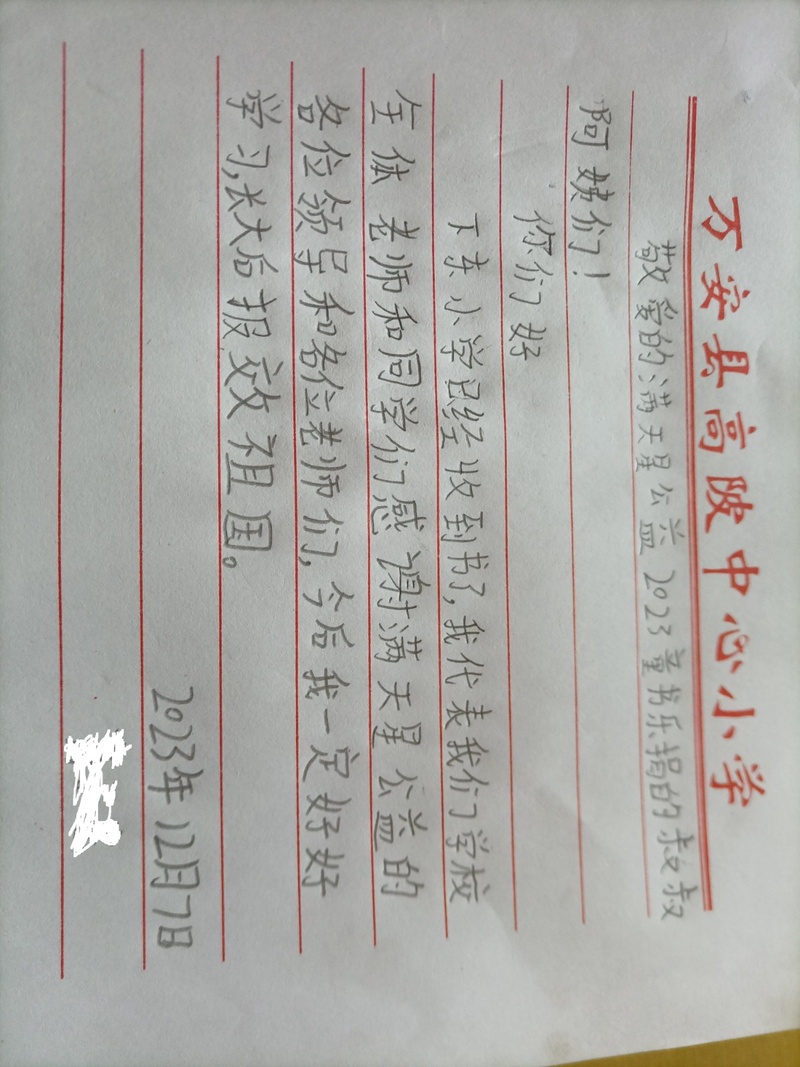 万安县高陂中心小学
敬爱的满天星公益2023童书乐捐的叔叔
阿姨们！
你们好
下东小学已经收到书了，我代表我们学校
全体老师和同学们感谢满天星公益的
各位领导和各位老师们，今后我一定好好
学习，长大后报效祖国。
2023年12月7日